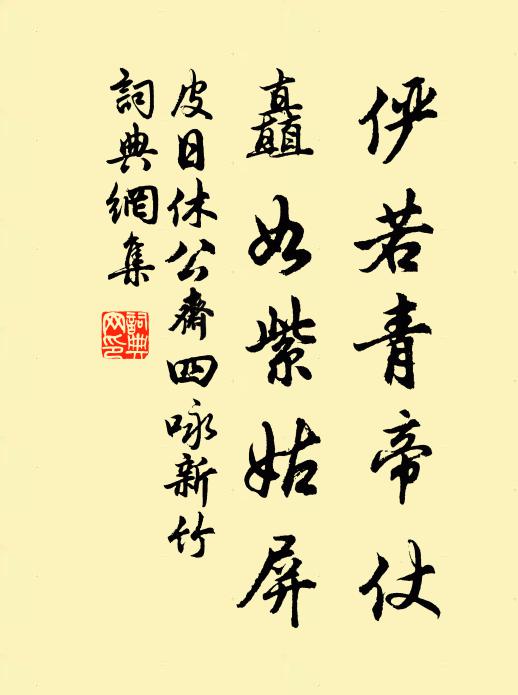 俨若青帝仗
矗如紫姑屏
皮日休公齋四咏新竹
詞典網集
詞典
网印